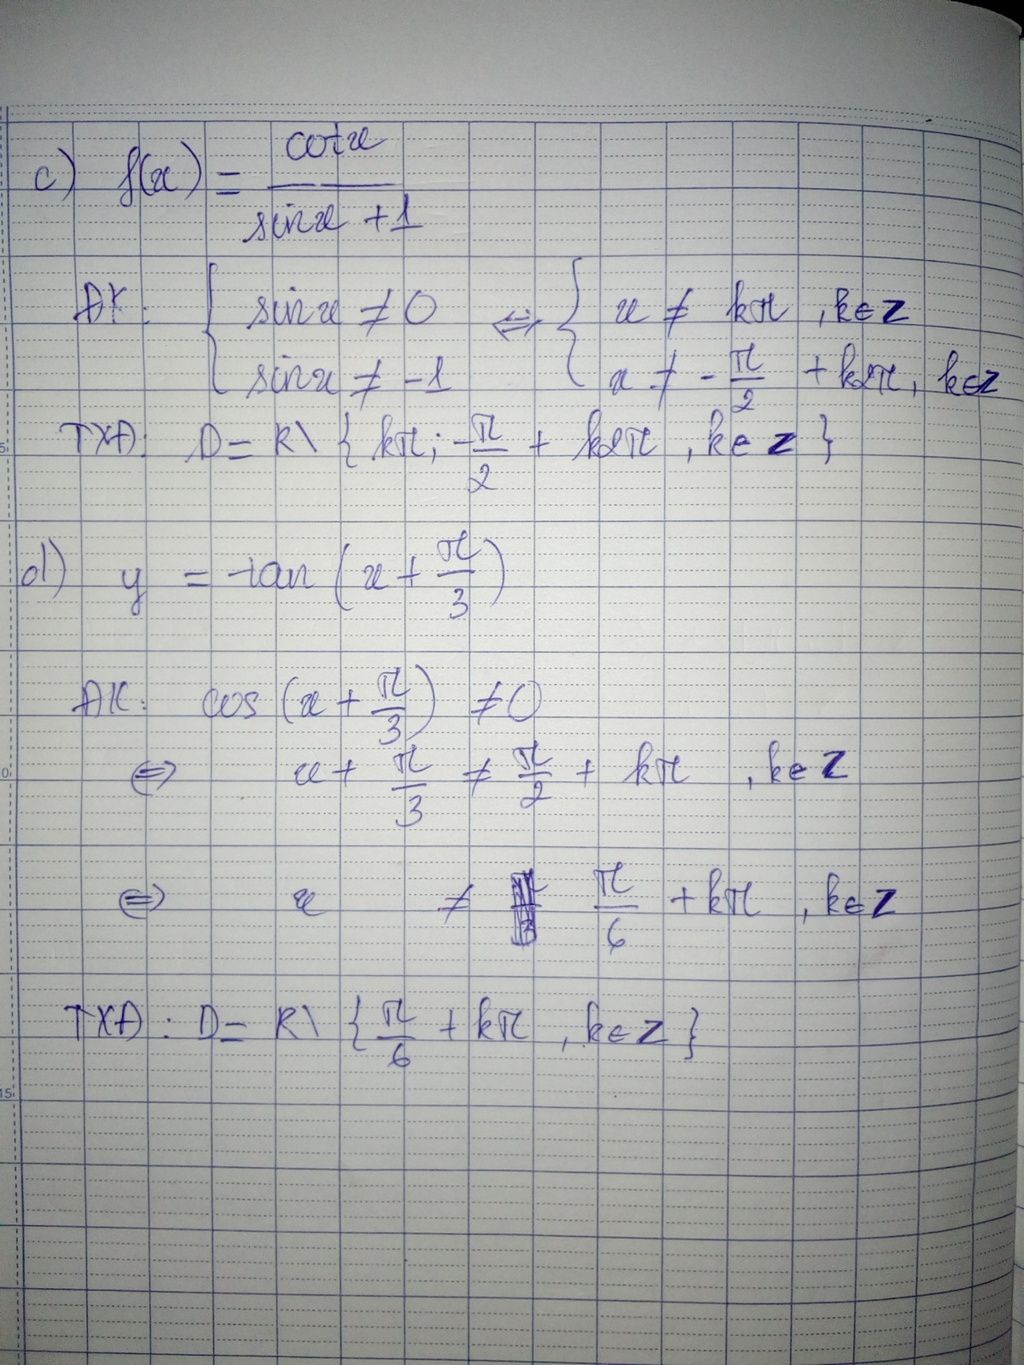 c) f(x) = cotx / (sinx + 1)
ĐK: { sinx ≠ 0 ⇔ { x ≠ kπ, k∈Z
sinx ≠ -1 x ≠ -π/2 + k2π, k∈Z
TXĐ: D = R\ {kπ; -π/2 + k2π, k∈Z}
d) y = tan(x + π/3)
ĐK: cos(x + π/3) ≠ 0
⇔ x + π/3 ≠ π/2 + kπ, k∈Z
⇔ x ≠ π/6 + kπ, k∈Z
TXĐ: D = R\ {π/6 + kπ, k∈Z}